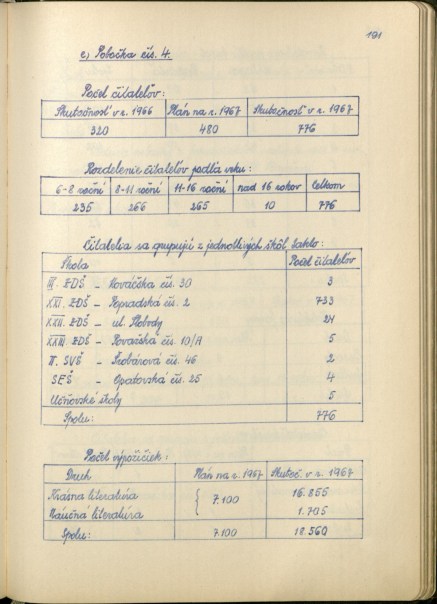 191
c) Pobočka čís. 4.
Počet čitateľov:
Skutočnosť v r. 1966 Plán na r. 1967 Skutočnosť v r. 1967
320 480 776
Rozdelenie čitateľov podľa veku:
6-8 roční 8-11 roční 11-16 roční nad 16 rokov Celkom
235 266 265 10 776
Čitatelia sa grupujú z jednotlivých škôl takto:
Škola Počet čitateľov
III. ZDŠ - Kováčska čís. 30 3
XXI. ZDŠ - Popradská čís. 2 733
XXII. ZDŠ - ul. Slobody 24
XXIII. ZDŠ - Považská čís. 10/A 5
II. SVŠ - Šrobárová čís. 46 2
SEŠ - Opatovská čís. 25 4
Učňovské školy 5
Spolu: 776
Počet výpožičiek:
Druh Plán na r. 1967 Skutoč. v r. 1967
Krásna literatúra { 7.100 16.855
Náučná literatúra 1.705
Spolu: 7.100 18.560